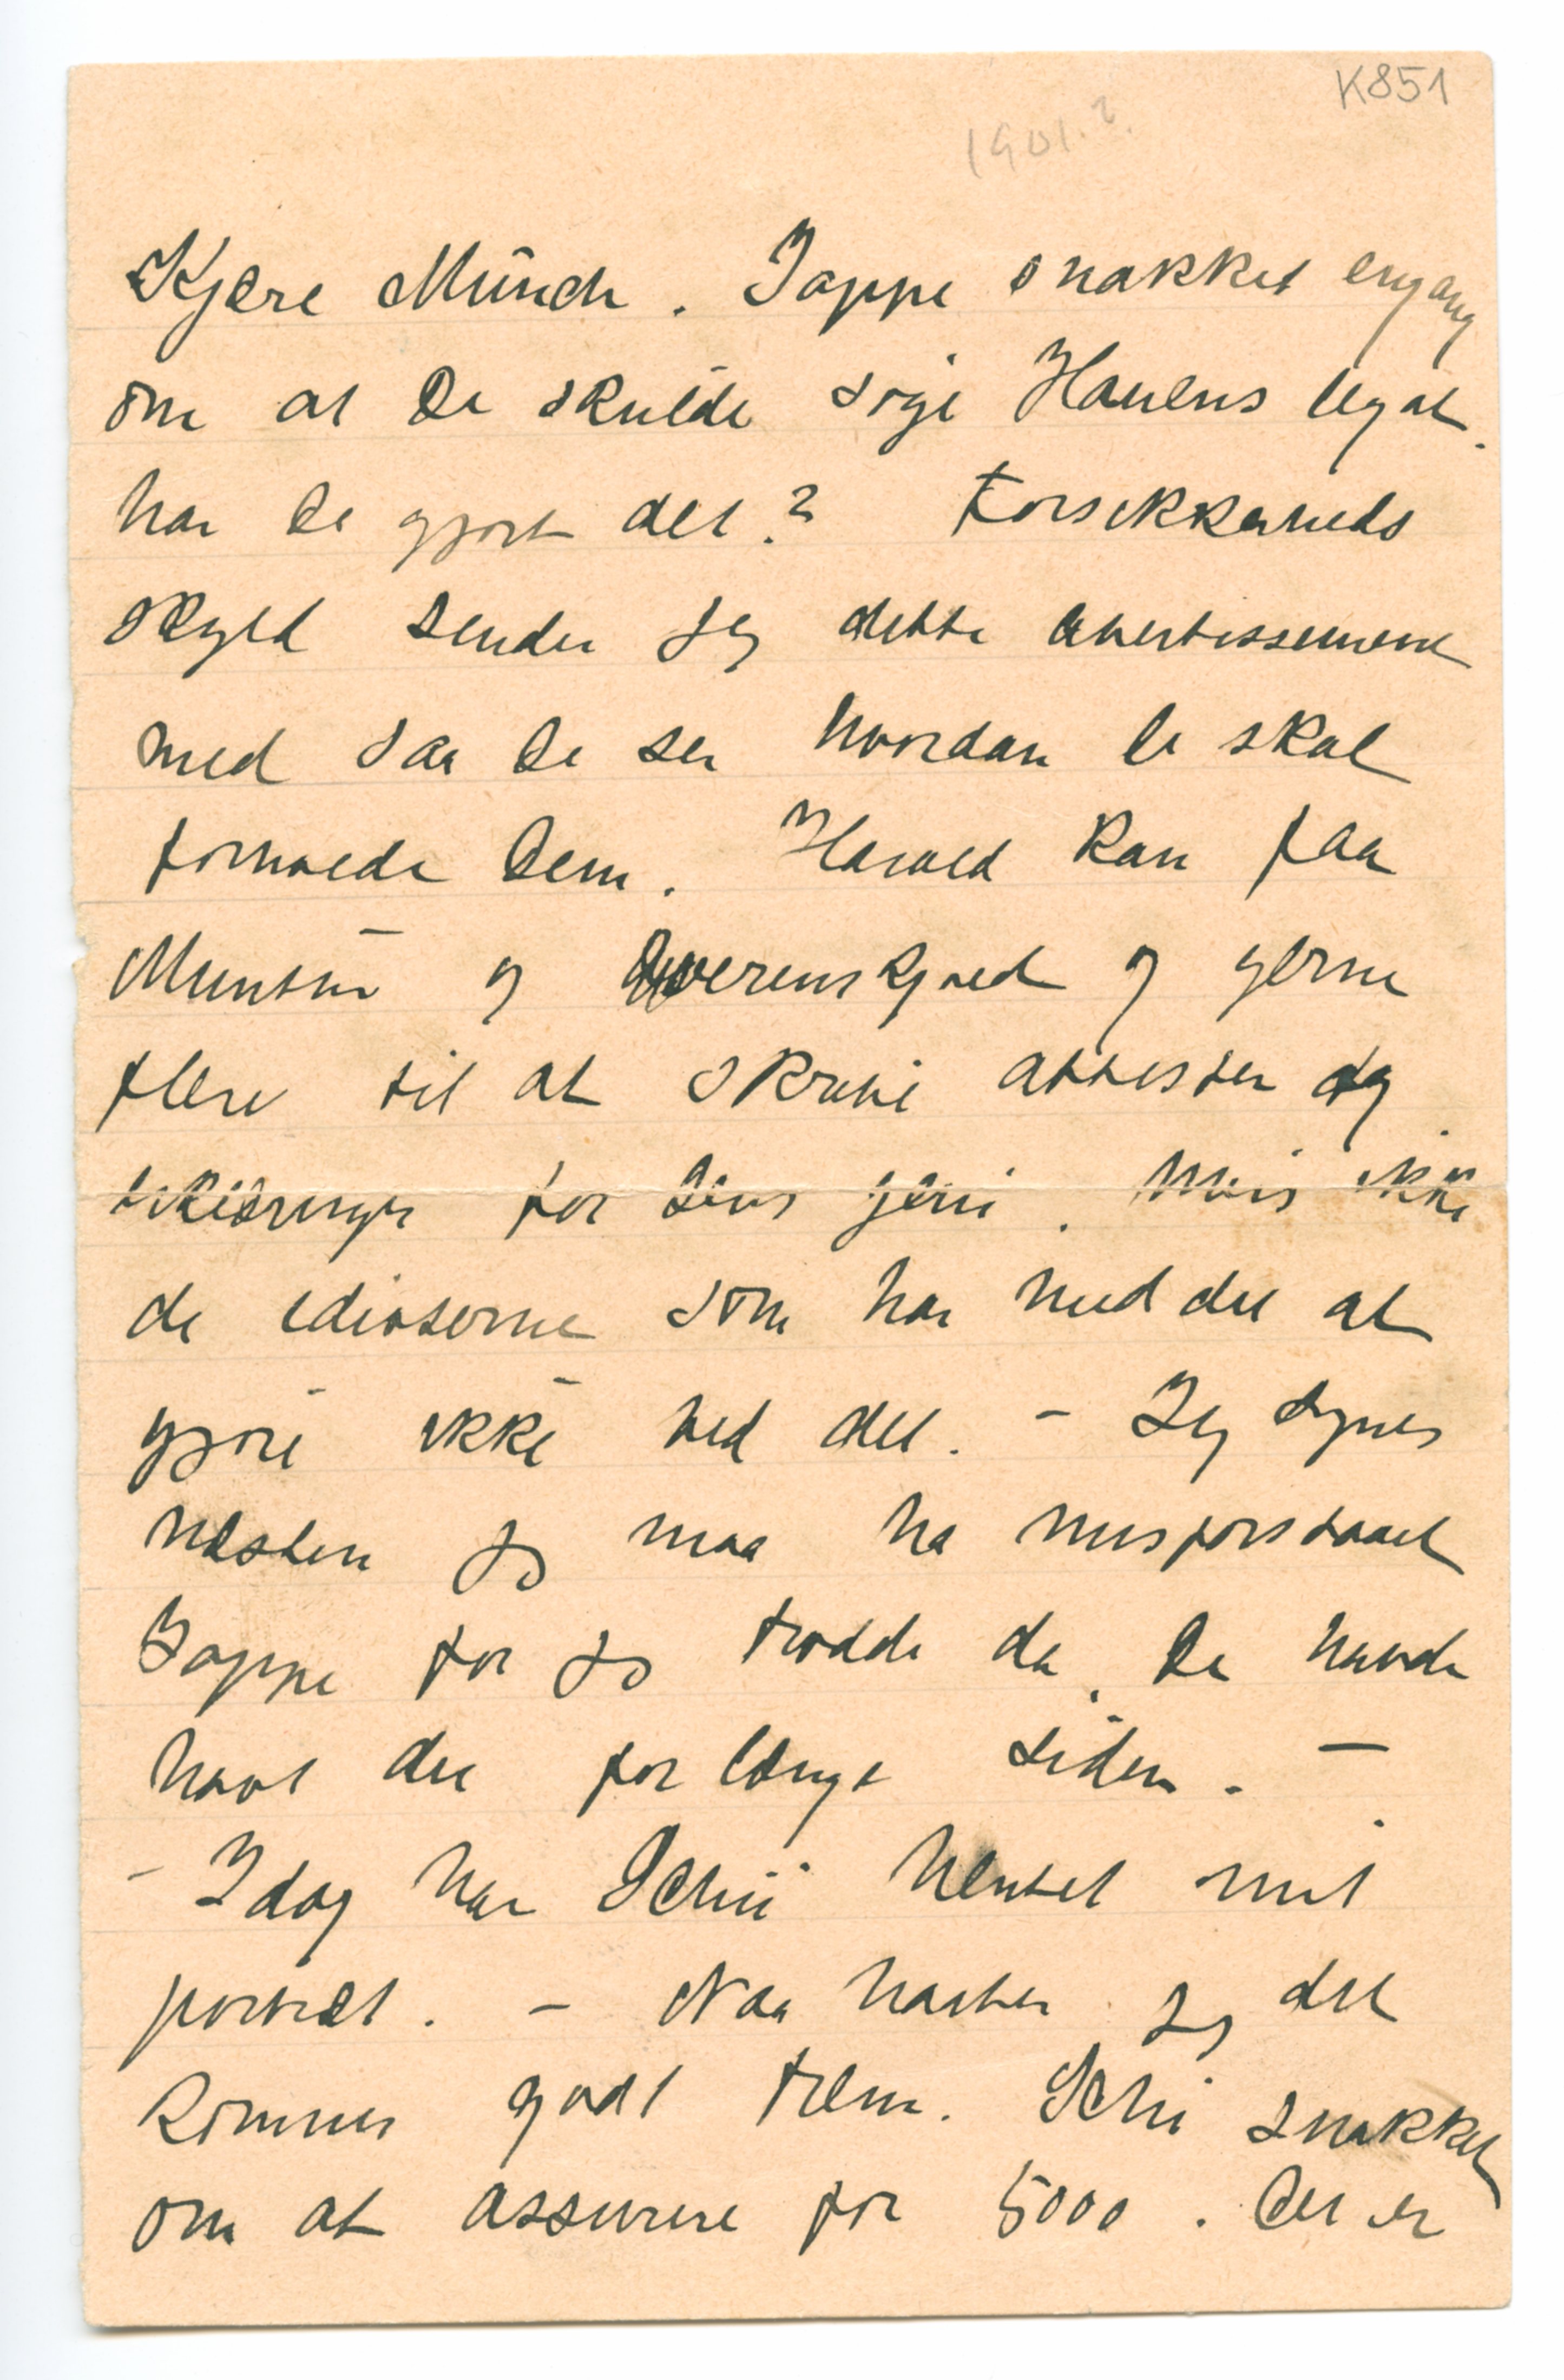 K851
1901.?.
Kjære Munch. Jappe snakket engang
om at De skulde søge Hauens legat.
har De gjort det? Forsikkerheds
skyld sender jeg dette avertissement
med saa De ser hvordan De skal
forholde Dem. Harald kan faa
Munthe og Werenskjold og gerne
flere til at skrive attester og
erklæringer for Deres geni. Hvis ikke
de idioterne som har med det at
gjøre ikke ved det. – Jeg synes
næsten jeg maa ha misforstaaet
Jappe for jeg trodde da De havde
havt det for længe siden. –
– Idag har Schii hentet mit
portræt. – Naa haaber jeg det
kommer godt frem. Schi snakket
om at assurere for 5000. Det er